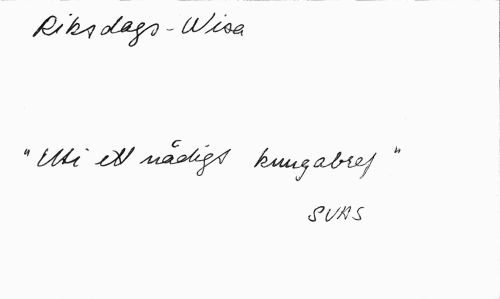 Riksdags-Wisa
"Uti ett nådigt kungabref"
SVAS